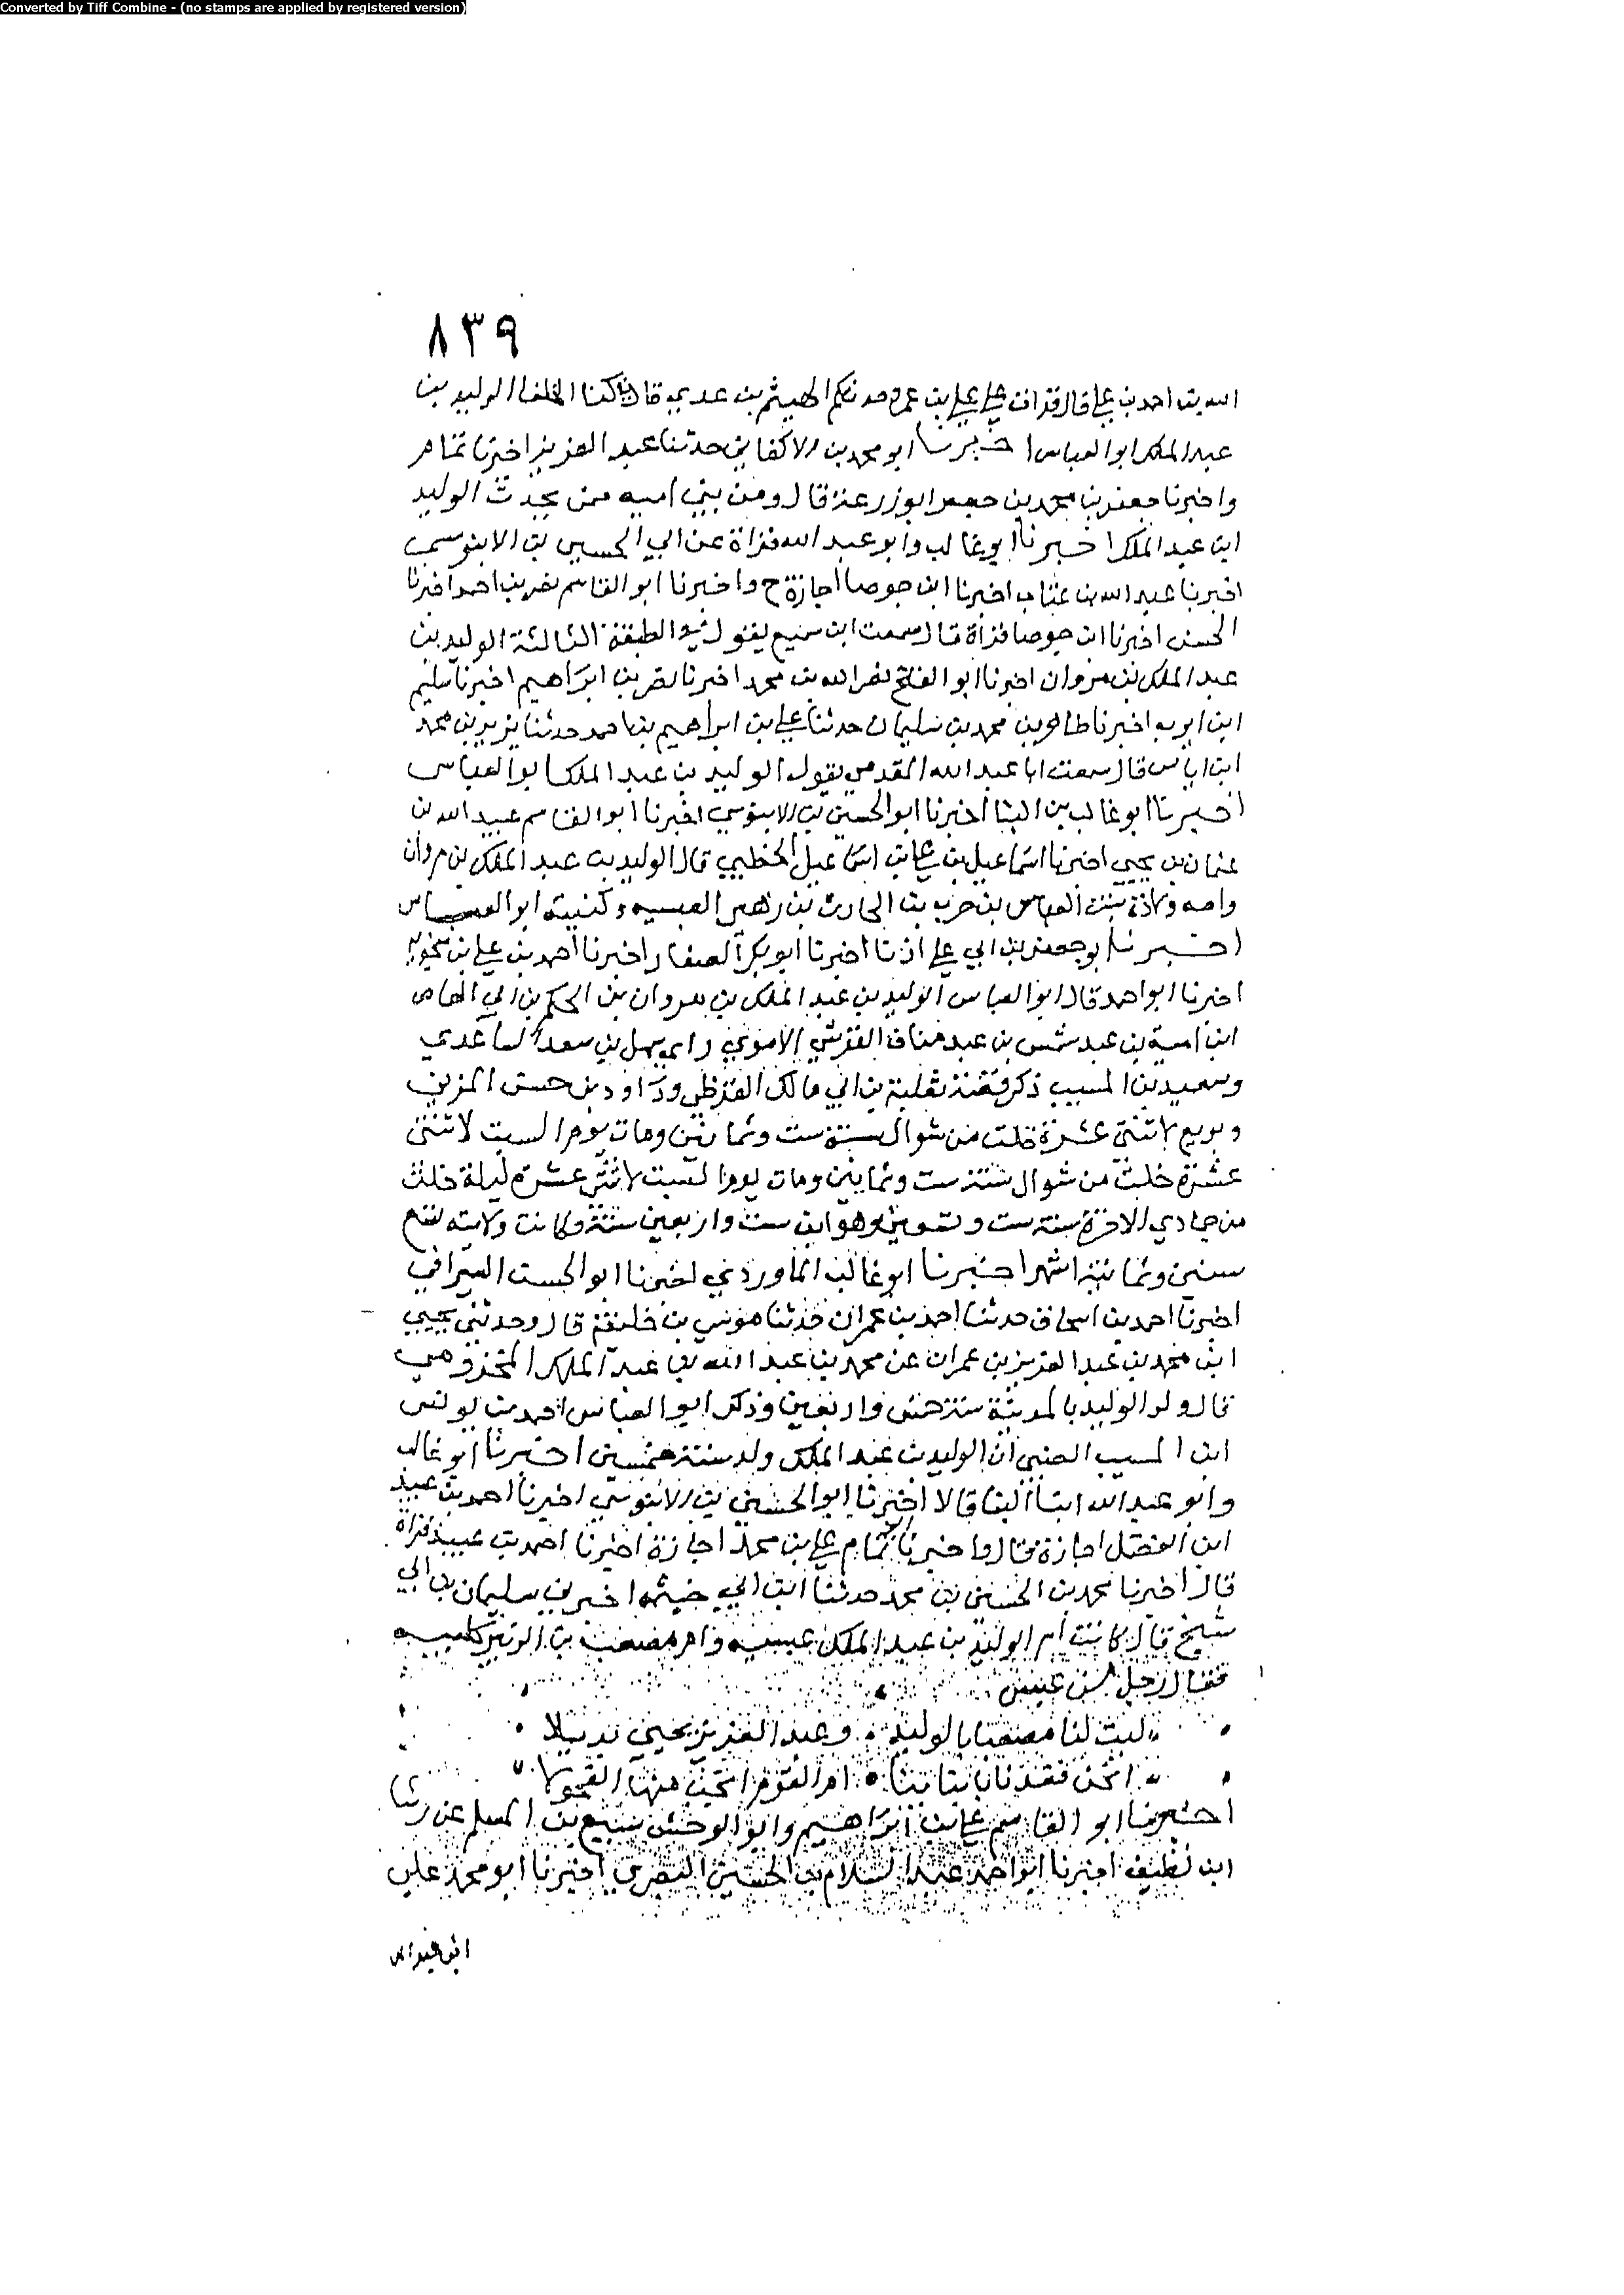 Converted by Tiff Combine - (no stamps are applied by registered version)
٨٣٩
الله بن احمد بن علي قال قرات علي علي بن عمرو حدثكم الهيثم بن عدي قال كنا الخلفا الوليد بن
عبد الملك ابو العباس اخبرنا ابو محمد بن الاكفاني حدثنا عبد العزيز اخبرنا تمام
واخبرنا جعفر بن محمد بن جعفر ابو زرعة قال ومن بني اميه ممن يحدث الوليد
ابن عبد الملك اخبرنا ابو غالب وابو عبد الله قراة عن ابي الحسين بن الابنوسي
اخبرنا عبد الله بن عتاب اخبرنا ابن جوصا اجازة ح واخبرنا ابو القاسم نصر بن احمد اخبرنا
الحسن اخبرنا ابن جوصا قراة قال سمعت ابن سميع يقول في الطبقة الثالثة الوليد بن
عبد الملك بن مروان اخبرنا ابو الفتح نصر الله بن محمد اخبرنا نصر بن ابراهيم اخبرنا سليم
ابن ايوب اخبرنا طاهر بن محمد بن سليمان حدثنا علي بن ابراهيم بن احمد حدثنا يزيد بن محمد
ابن اياس قال سمعت ابا عبد الله المقدمي يقول الوليد بن عبد الملك ابو العباس
اخبرنا ابو غالب بن البنا اخبرنا ابو الحسين بن الابنوسي اخبرنا ابو القاسم عبيد الله بن
عثمان بن يحيي اخبرنا اسماعيل بن علي بن اسماعيل الخطبي قال الوليد بن عبد الملك بن مروان
وامه ولادة بنت العباس بن حرب بن الحارث بن زهير العبسيه وكنيته ابو العباس
اخبرنا ابو جعفر بن ابي علي اذنا اخبرنا ابو بكر الصفار اخبرنا احمد بن علي بن منجويه
اخبرنا ابو احمد قال ابو العباس الوليد بن عبد الملك بن مروان بن الحكم بن ابي العاص
ابن امية بن عبد شمس بن عبد مناف القرشي الاموي راي سهل بن سعد الساعدي
وسعيد بن المسيب ذكر قصته ثعلبة بن ابي مالك القرظي وداود بن حسن المزني
وبويع لاثنتي عشرة خلت من شوال سنة ست وثمانين ومات يوم السبت لاثنتي
عشرة خلت من شوال سنة ست وثمانين ومات يوم السبت لاثنتي عشرة ليلة خلت
من جمادي الاخرة سنة ست وتسعين وهو ابن ست واربعين سنة وكانت ولايته تسع
سنين وثمانية اشهر اخبرنا ابو غالب الماوردي اخبرنا ابو الحسن السيرافي
اخبرنا احمد بن اسحاق حدثنا احمد بن عمران حدثنا موسي بن خليفة قال وحدثني يحيي
ابن محمد بن عبد العزيز بن عمران عن محمد بن عبد الله بن عبد الملك المخزومي
قال ولد الوليد بالمدينة سنة خمس واربعين وذكر ابو العباس احمد بن يونس
ابن المسيب الضبي ان الوليد بن عبد الملك ولد سنة خمسين اخبرنا ابو غالب
وابو عبد الله ابنا البنا قالا اخبرنا ابو الحسين بن الابنوسي اخبرنا احمد بن عبيد
ابن الفضل اجازة قال واخبرنا تمام علي بن محمد اجازة اخبرنا احمد بن عبيد قراة
قال اخبرنا محمد بن الحسين بن محمد حدثنا ابن ابي خيثمه اخبرني سليمان بن ابي
شيخ قال كانت ام الوليد بن عبد الملك عبسيه وام مصعب بن الزبير كلبيه
فقال رجل من عبس
ليت لنا مصعبا بالوليد وعبد العزيز بيحيي بديلا
انحن فقدنا ام القوم انجب منها
اخبرنا ابو القاسم علي بن ابراهيم وابو الوحش سبيع بن المسلم عن رشا
ابن نظيف اخبرنا ابو احمد عبد السلام بن الحسين البصري اخبرنا ابو محمد علي
ابن عبد الله